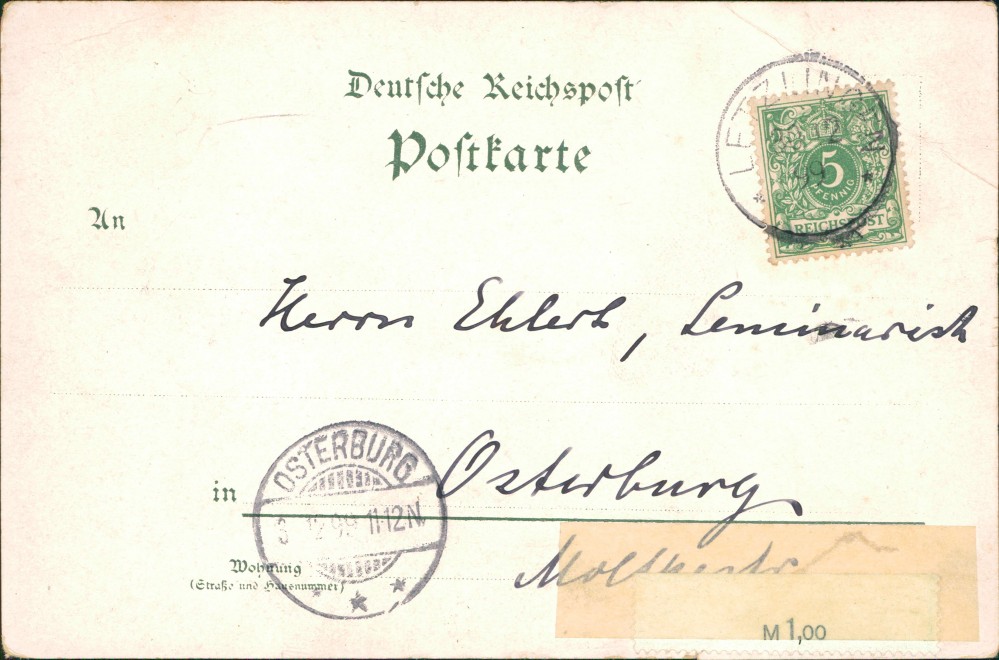 Deutsche Reichspost
Postkarte
LETZLINGEN
12
99
5
PFENNIG
REICHSPOST
An
Herrn Ehlert, Seminarist
OSTERBURG
12 99 11-12N.
in Osterburg
Wohnung
(Straße und Hausnummer)
Moltkestr
M 1,00